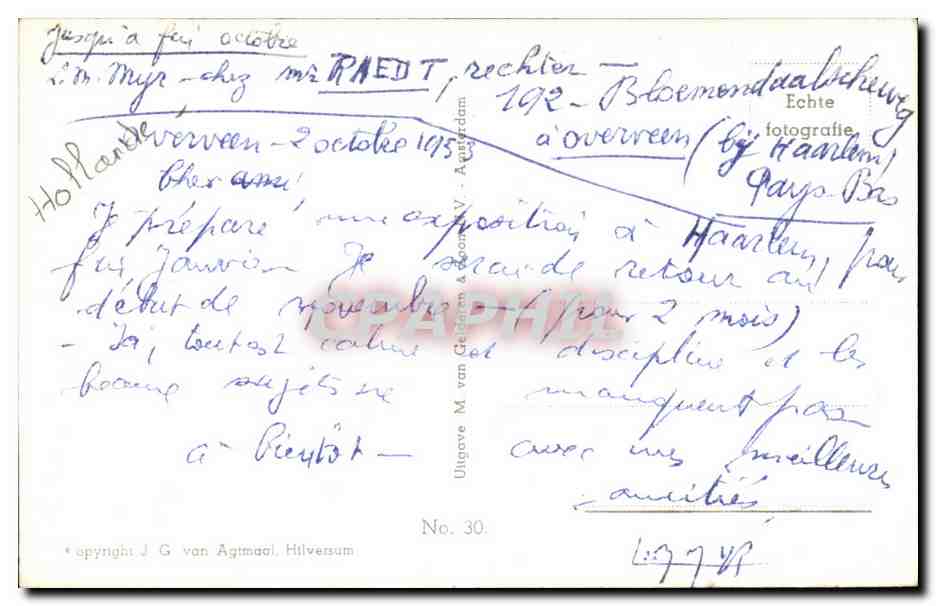 Jusqu'à fin octobre
L.M. Myr - chez Mr RAEDT, rechter -
192 - Bloemendaalscheweg
à overveen (bij Haarlem)
Pays-Bas
Hollande
Echte
fotografie
overveen - 2 octobre 195
Cher ami,
Je prépare une exposition à Haarlem, pour
fin janvier. Je serai de retour au
début de novembre - (pour 2 mois)
- Ici, tout est calme et discipline et les
beaux sujets ne manquent pas
à bientôt - avec mes meilleures
amitiés,
Uitgave M. van Gelderen & Zoon N.V. - Amsterdam
No. 30.
Copyright J. G. van Agtmaal, Hilversum
CPAPHIL